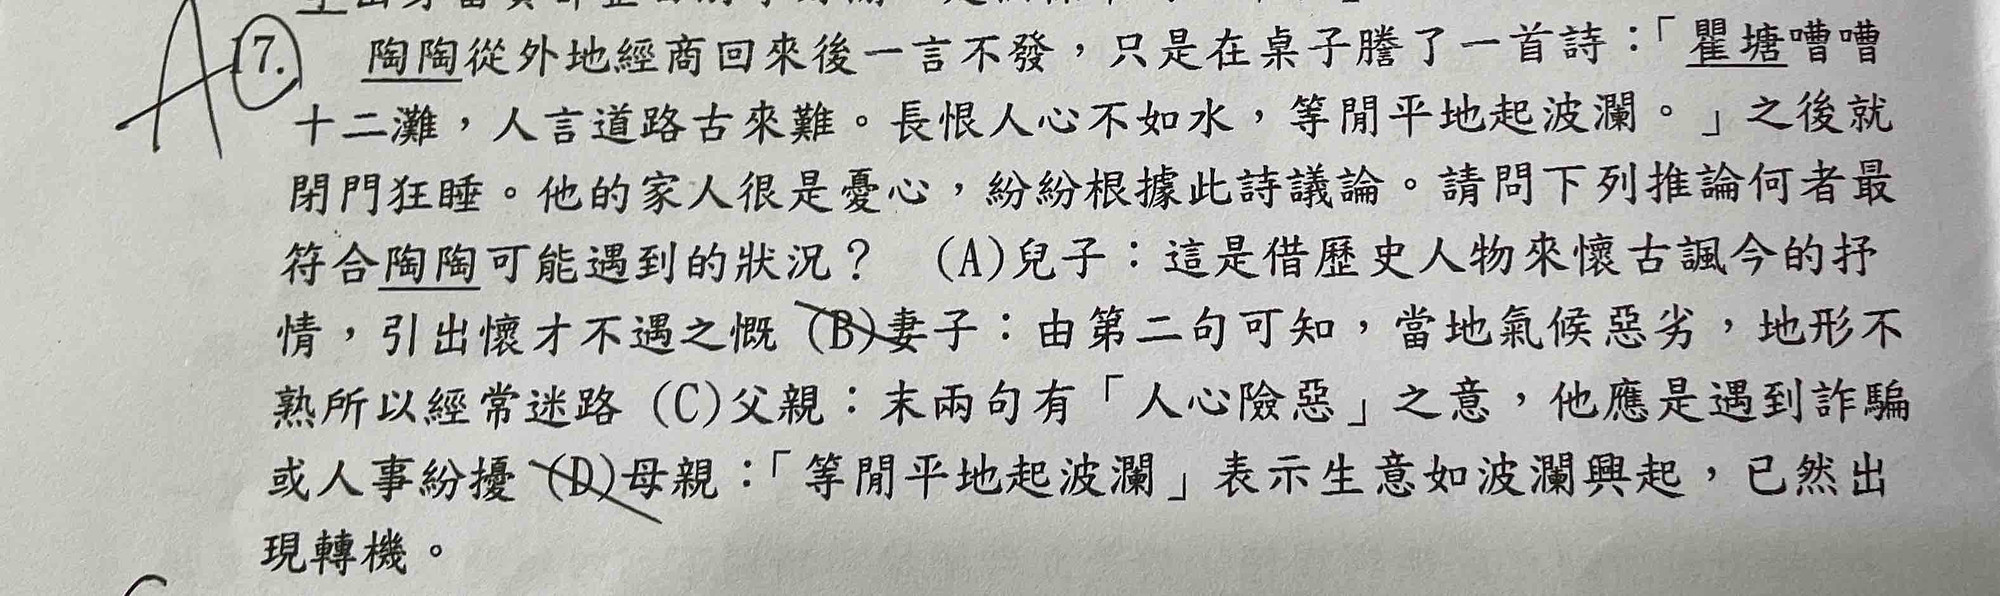 A 17. 陶陶從外地經商回來後一言不發，只是在桌子謄了一首詩：「瞿塘嘈嘈
十二灘，人言道路古來難。長恨人心不如水，等閒平地起波瀾。」之後就
閉門狂睡。他的家人很是憂心，紛紛根據此詩議論。請問下列推論何者最
符合陶陶可能遇到的狀況？ (A)兒子：這是借歷史人物來懷古諷今的抒
情，引出懷才不遇之慨 (B)妻子：由第二句可知，當地氣候惡劣，地形不
熟所以經常迷路 (C)父親：末兩句有「人心險惡」之意，他應是遇到詐騙
或人事紛擾 (D)母親：「等閒平地起波瀾」表示生意如波瀾興起，已然出
現轉機。